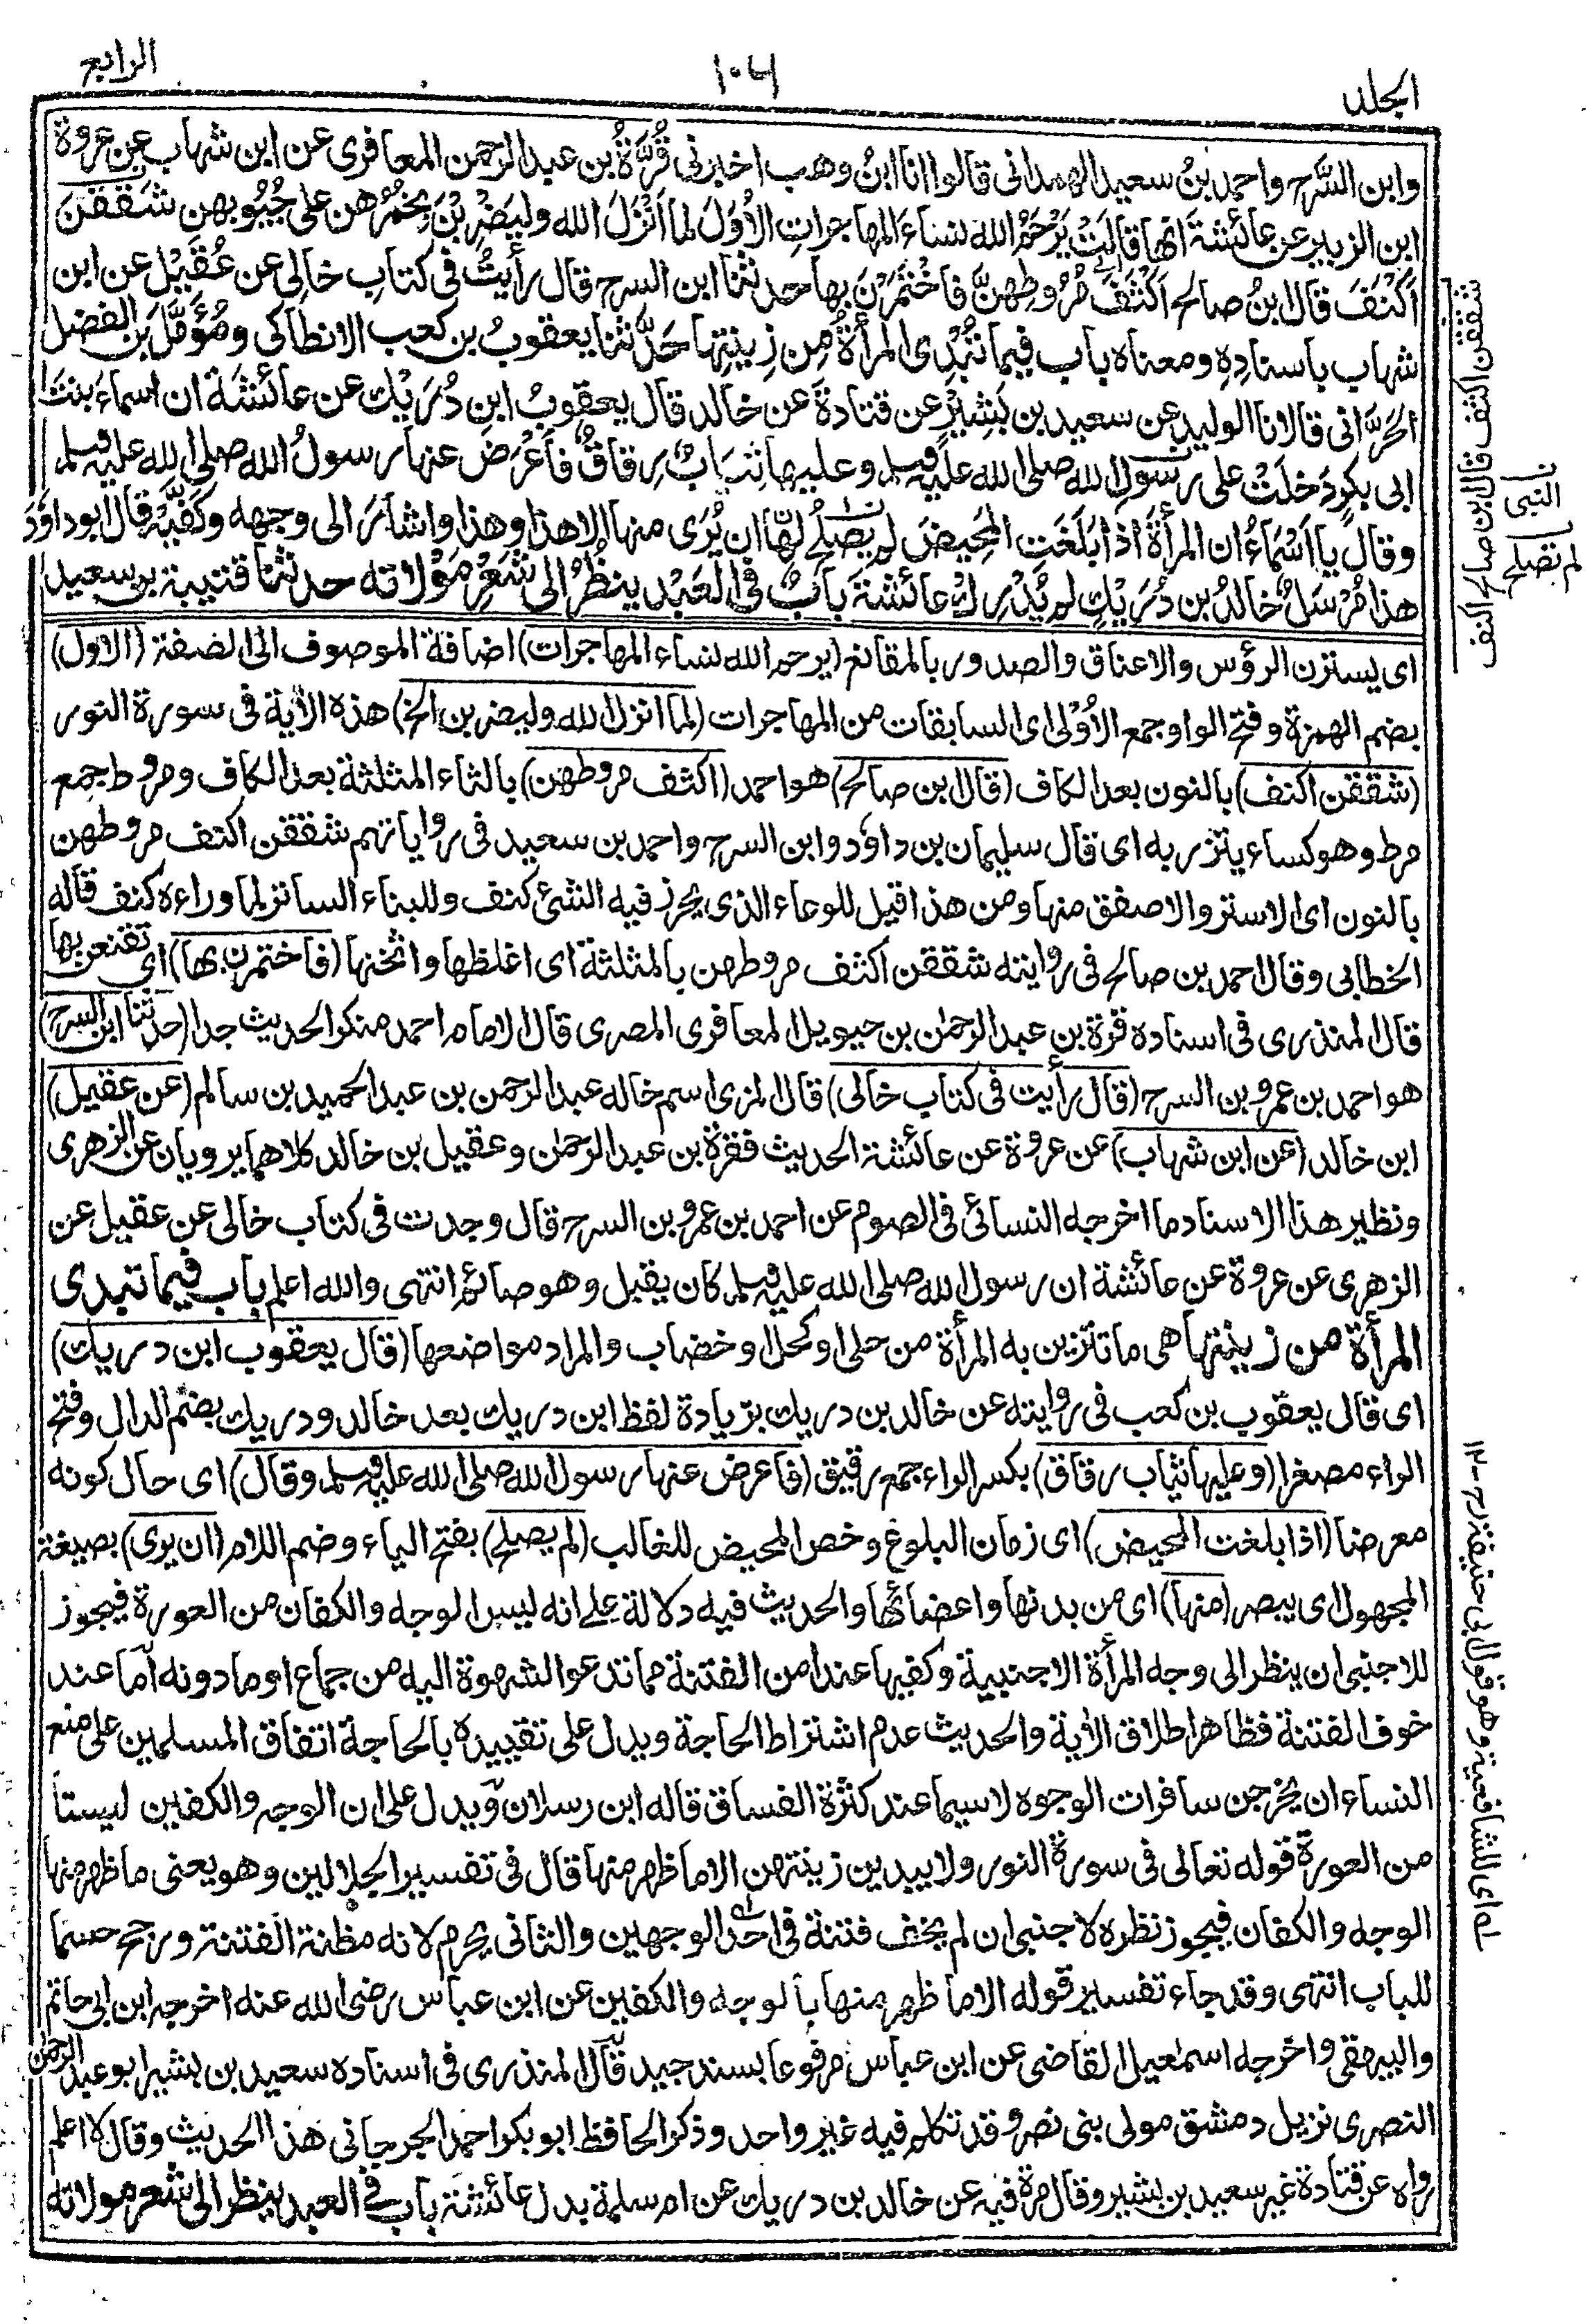 الجلد
١٠٦
الرابع
وابن السَّرح واحمد بنُ سعيد الهمدانى قالوا انا ابنُ وهب اخبرنى قُرَّةُ بن عبد الرحمن المعافرى عن ابن شهاب عن عروة
ابن الزبير عن عائشة انها قالت يَرْحَمُ الله نساءَ المهاجراتِ الاُوَلَ لما اَنْزَلَ الله وليَضْرِبْنَ بِخُمُرِهن على جُيُوبهن شَقَقْنَ
اَكْنَفَ قال ابنُ صالح اَكْثَفَ مُرُوطِهِنَّ فَاخْتَمَرْنَ بها حدثنا ابن السرح قال رأيتُ فى كتابِ خالى عن عُقَيْل عن ابن
شهاب باسنادِهِ ومعناه باب فيما تُبْدِى المرأةُ مِن زِينتِها حَدَّثنا يعقوبُ بن كعب الانطاكى ومُؤَمَّلُ بن الفضل
الحَرَّانى قالا نا الوليد عن سعيد بن بَشِيْرٍ عن قتادةَ عن خالد قال يعقوبُ ابن دُرَيْك عن عائشة ان اسماءَ بنتَ
ابى بكر دَخَلَتْ على رسولِ الله صلى الله عليه وسلم وعليها ثيابٌ رِقاقٌ فاَعْرَضَ عنها رسولُ الله صلى الله عليه وسلم
وقال يا اَسْمَاءُ ان المرأةَ اذا بَلَغَت المَحِيضَ لم يَصْلُحْ لها ان يُرَى منها الا هذا وهذا واشارَ الى وجهه وكَفَّيْه قال ابو داوَد
هذا مُرْسَلٌ خالدُ بن دُرَيْكٍ لم يُدْرِك عائشة بابٌ فى العَبْد ينظُرُ الى شَعْرِ مَوْلاته حدثنا قتيبة بن سعيد
اى يسترن الرؤس والاعناق والصدور بالمقانع (يرحم الله نساء المهاجرات) اضافة الموصوف الى الصفة (الاول)
بضم الهمزة وفتح الواو جمع الاُوْلى اى السابقات من المهاجرات (لما انزل الله وليضربن الخ) هذه الاٰية فى سورة النور
(شققن اكنف) بالنون بعد الكاف (قال ابن صالح) هو احمد (اكثف مروطهن) بالثاء المثلثة بعد الكاف ومروط جمع
مرط وهو كساء يتزر به اى قال سليمان بن داؤد وابن السرح واحمد بن سعيد فى رواياتهم شققن اكنف مروطهن
بالنون اى الاستر والاصفق منها ومن هذا قيل للوعاء الذى يحرز فيه الشئ كنف وللبناء الساتر لما وراءه كنف قاله
الخطابى وقال احمد بن صالح فى روايته شققن اكثف مروطهن بالمثلثة اى اغلظها واثخنها (فاختمرن بها) اى تقنعن بها
قال المنذرى فى اسناده قرة بن عبد الرحمٰن بن حيويل المعافرى المصرى قال الامام احمد منكر الحديث جدا (حدثنا ابن السرح)
هو احمد بن عمرو بن السرح (قال رأيت فى كتاب خالى) قال المزى اسم خاله عبد الرحمن بن عبد الحميد بن سالم (عن عقيل)
ابن خالد (عن ابن شهاب) عن عروة عن عائشة الحديث فقرة بن عبد الرحمٰن وعقيل بن خالد كلاهما يرويان عن الزهرى
ونظير هذا الاسناد ما اخرجه النسائى فى الصوم عن احمد بن عمرو بن السرح قال وجدت فى كتاب خالى عن عقيل عن
الزهرى عن عروة عن عائشة ان رسول الله صلى الله عليه وسلم كان يقبل وهو صائم انتهى والله اعلم باب فيما تبدى
المرأة من زينتها هى ما تتزين به المرأة من حلى او كحل او خضاب والمراد مواضعها (قال يعقوب ابن دريك)
اى قال يعقوب بن كعب فى روايته عن خالد بن دريك بزيادة لفظ ابن دريك بعد خالد ودريك بضم الدال وفتح
الراء مصغرا (وعليها ثياب رقاق) بكسر الراء جمع رقيق (فاعرض عنها رسول الله صلى الله عليه وسلم وقال) اى حال كونه
معرضا (اذا بلغت المحيض) اى زمان البلوغ وخص المحيض للغالب (لم يصلح) بفتح الياء وضم اللام (ان يرى) بصيغة
المجهول اى يبصر (منها) اى من بدنها واعضائها والحديث فيه دلالة على انه ليس الوجه والكفان من العورة فيجوز
للاجنبى ان ينظر الى وجه المرأة الاجنبية وكفيها عند امن الفتنة مما تدعو الشهوة اليه من جماع او ما دونه اما عند
خوف الفتنة فظاهر اطلاق الاٰية والحديث عدم اشتراط الحاجة ويدل على تقييده بالحاجة اتفاق المسلمين على منع
النساء ان يخرجن سافرات الوجوه لاسيما عند كثرة الفساق قاله ابن رسلان ويدل على ان الوجه والكفين ليستا
من العورة قوله تعالى فى سورة النور ولا يبدين زينتهن الا ما ظهر منها قال فى تفسير الجلالين وهو يعنى ما ظهر منها
الوجه والكفان فيجوز نظره لاجنبى ان لم يخف فتنة فى احد الوجهين والثانى يحرم لانه مظنة الفتنة ورجح حسما
للباب انتهى وقد جاء تفسير قوله الا ما ظهر منها بالوجه والكفين عن ابن عباس رضى الله عنه اخرجه ابن ابى حاتم
والبيهقى واخرجه اسمٰعيل القاضى عن ابن عباس مرفوعا بسند جيد قال المنذرى فى اسناده سعيد بن بشير ابو عبد الرحمٰن
النصرى نزيل دمشق مولى بنى نصر وقد تكلم فيه غير واحد وذكر الحافظ ابو بكر احمد الجرجانى هذا الحديث وقال لا اعلم
رواه عن قتادة غير سعيد بن بشير وقال مرة فيه عن خالد بن دريك عن ام سلمة بدل عائشة باب فى العبد ينظر الى شعر مولاته
شققن اكثف قال ابن صالح اكنف
النبى
لم تصلح
له اى للشافعية وهو قول ابى حنيفة رح ١٢